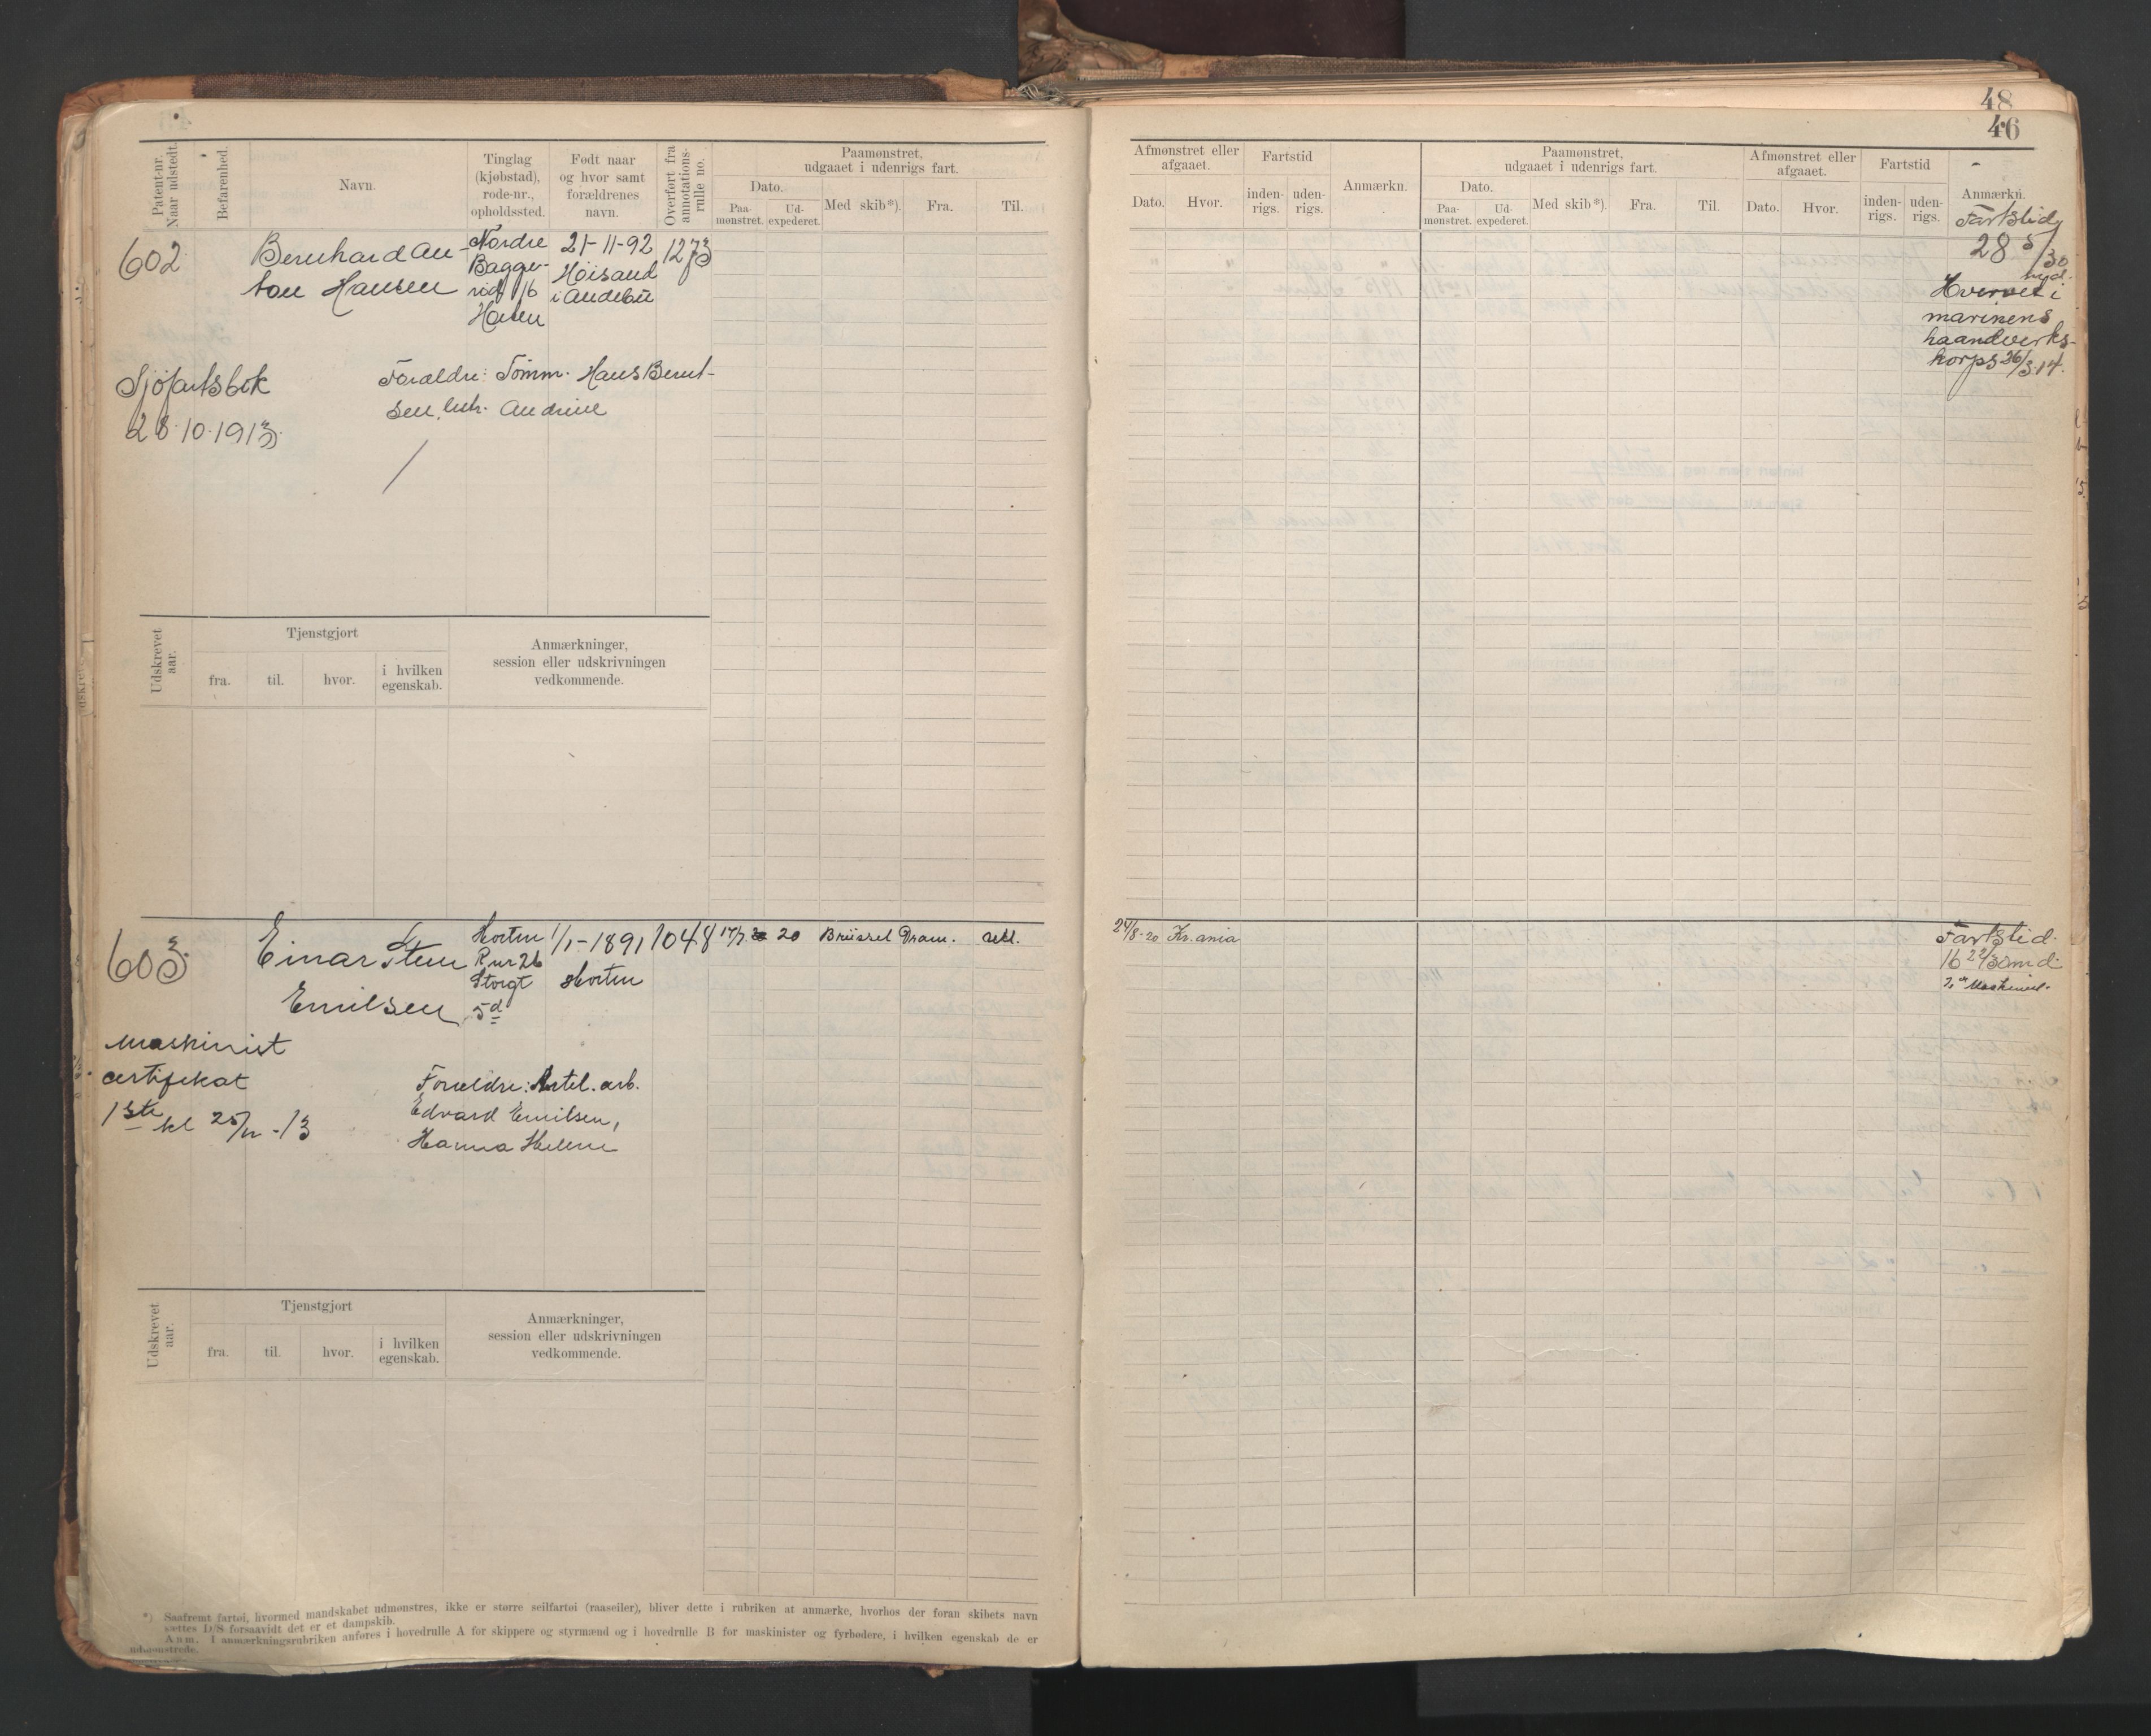 48
46
Patent-nr.
Naar udstedt.
Befarenhed.
Navn.
Tinglag
(kjøbstad),
rode-nr.,
opholdssted.
Født naar
og hvor samt
forældrenes
navn.
Overført fra
annotations-
rulle no.
Paamønstret,
udgaaet i udenrigs fart.
Dato.
Paa-
mønstret.
Ud-
expederet.
Med skib*).
Fra.
Til.
Afmønstret eller
afgaaet.
Dato.
Hvor.
Fartstid
inden-
rigs.
uden-
rigs.
Anmærkn.
Paamønstret,
udgaaet i udenrigs fart.
Dato.
Paa-
mønstret.
Ud-
expederet.
Med skib*).
Fra.
Til.
Afmønstret eller
afgaaet.
Dato.
Hvor.
Fartstid
inden-
rigs.
uden-
rigs.
Anmærkn.
602
Bernhard An-
ton Hansen
Nordre
Bagge-
rød 16
Horten
21-11-92
Høisand
i Andebu
1273
Fartstid
28 5/30
Hvervet i
marinens
haandverks-
korps 26/3.14.
Sjøfartsbok
28.10.1913.
Forældre: Tømm. Hans Bernt-
sen, hstr. Andrine
Udskrevet
aar.
Tjenstgjort
fra.
til.
hvor.
i hvilken
egenskab.
Anmærkninger,
session eller udskrivningen
vedkommende.
603
Einar Sten
Emilsen
Horten
R nr 26
Storgt
5d
1/1-1891
Horten
1048
17/7
20
Brüssel
Dram.
Utl.
24/8-20 Kr.ania
Fartstid
16 22/30 md.
2den Maskinist.
Maskinist
certifikat
1ste kl 25/11-13
Forældre: Artel. arb.
Edvard Emilsen,
Hanna Helene
Udskrevet
aar.
Tjenstgjort
fra.
til.
hvor.
i hvilken
egenskab.
Anmærkninger,
session eller udskrivningen
vedkommende.
*) Saafremt fartøi, hvormed mandskabet udmønstres, ikke er større seilfartøi (raaseiler), bliver dette i rubriken at anmærke, hvorhos der foran skibets navn
sættes D/S forsaavidt det er et dampskib.
Anm. I anmærkningsrubriken anføres i hovedrulle A for skippere og styrmænd og i hovedrulle B for maskinister og fyrbødere, i hvilken egenskab de er
udmønstrede.